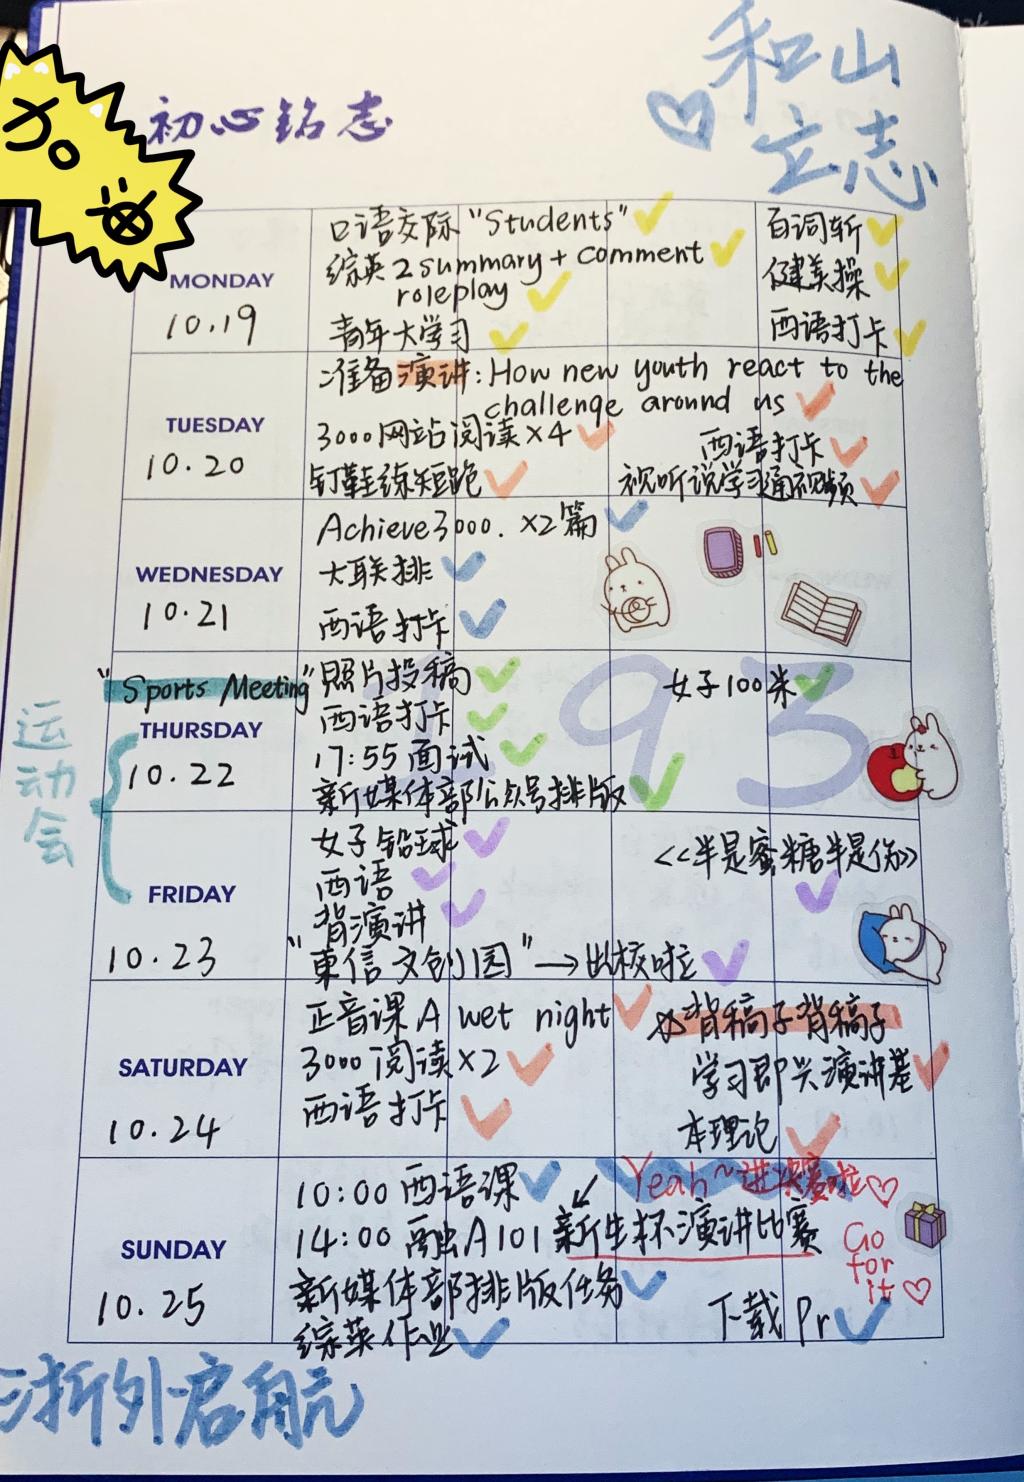 和山
立志
初心铭志
加o
MONDAY
10.19
口语交际 "Students"
综英2 summary + comment
roleplay
青年大学习
百词斩
健美操
西语打卡
TUESDAY
10.20
准备演讲: How new youth react to the
challenge around us
3000网站阅读×4
西语打卡
钉鞋练短跑
视听说学习通视频
WEDNESDAY
10.21
Achieve3000. ×2篇
大联排
西语打卡
运动会
"Sports Meeting"
THURSDAY
10.22
照片投稿
女子100米
西语打卡
17:55 面试
新媒体部公众号排版
493
FRIDAY
10.23
女子铅球
西语
背演讲
<<半是蜜糖半是伤>>
"東信文创园" → 出校啦
SATURDAY
10.24
正音课 A wet night
背稿子背稿子
3000阅读×2
学习即兴演讲基
本理论
西语打卡
SUNDAY
10.25
10:00 西语课
Yeah~进决赛啦♡
14:00 融A101 新生杯演讲比赛
Go
for
it ♡
新媒体部排版任务
综英作业
下载Pr
浙外启航